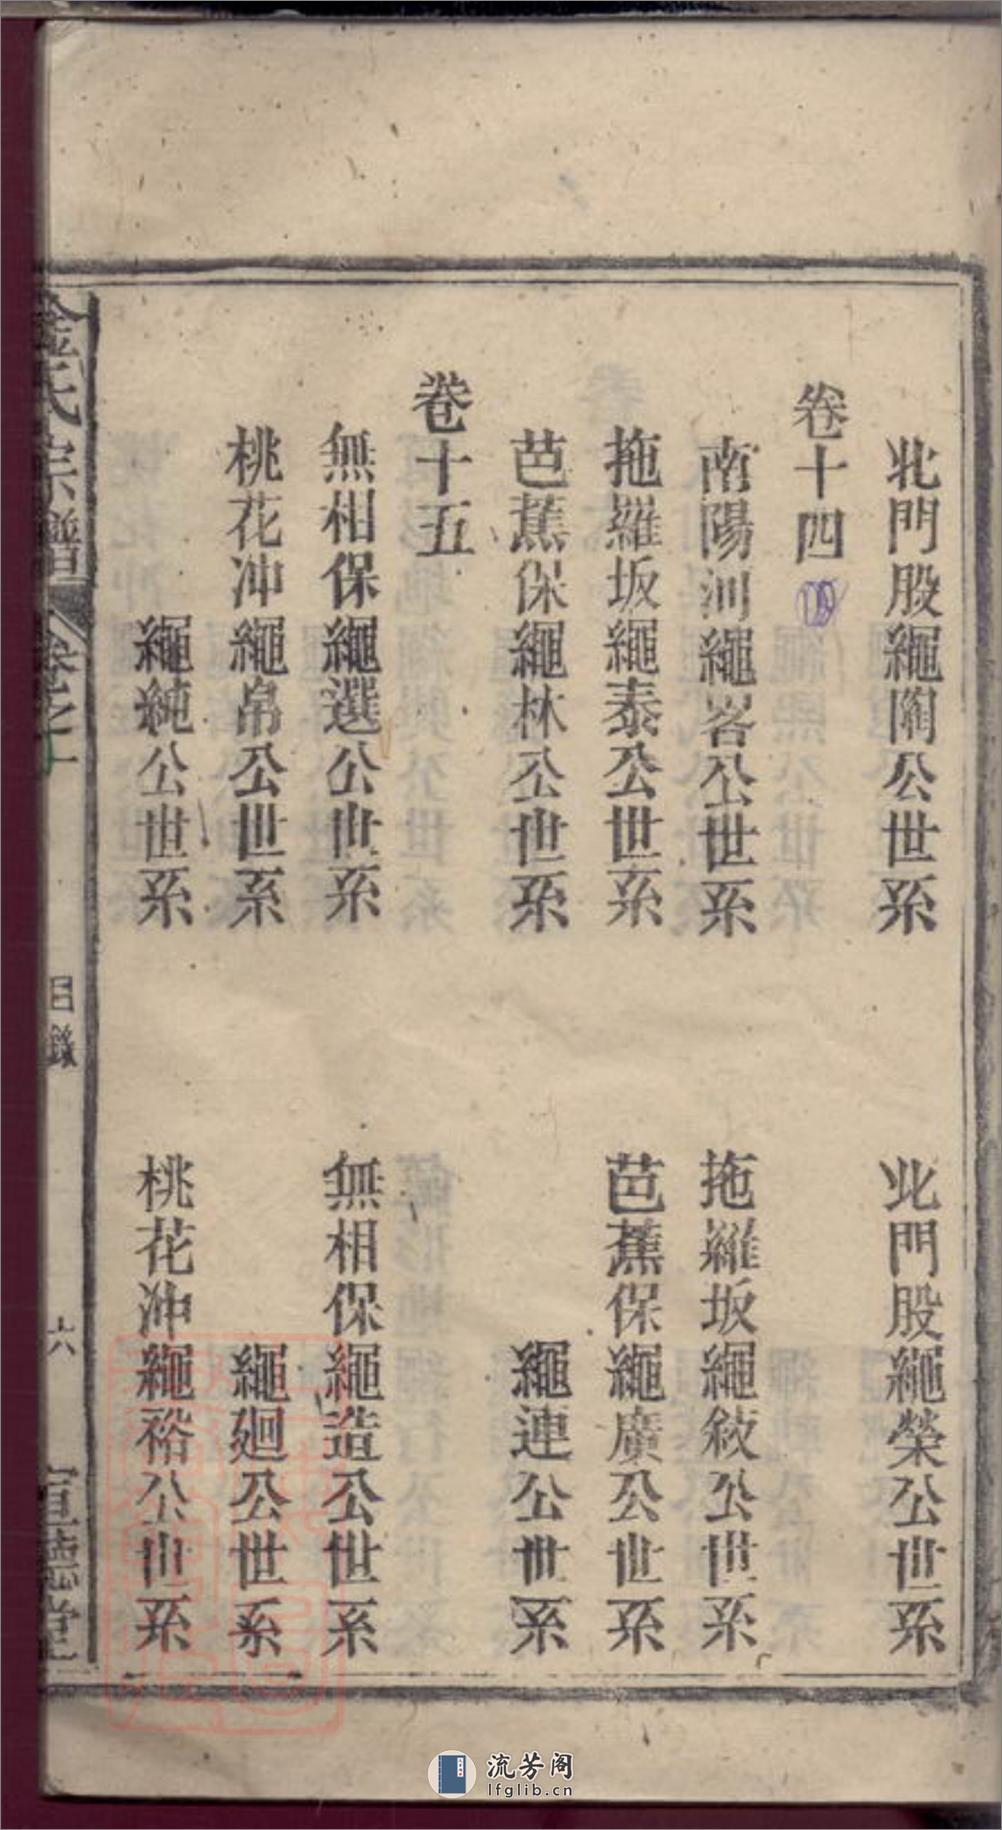 北門股繩關公世系
北門股繩榮公世系
卷十四
南陽河繩峉公世系
拖羅坂繩敍公世系
拖羅坂繩泰公世系
芭蕉保繩廣公世系
芭蕉保繩林公世系
繩連公世系
卷十五
無相保繩選公世系
無相保繩造公世系
桃花冲繩帛公世系
繩廻公世系
繩純公世系
桃花冲繩裕公世系
金氏宗譜
卷之一
目錄
六
宣德堂
流芳阁
lfglib.cn